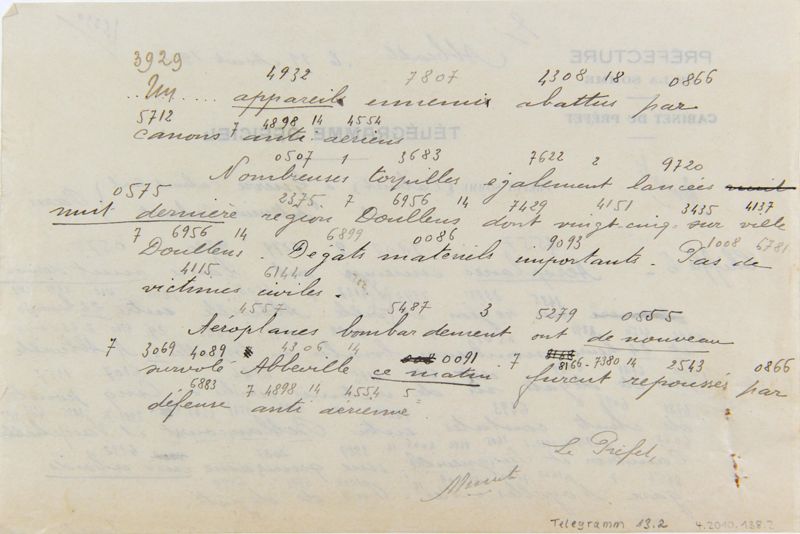 3929
4932 7807 4308 18 0866
..Un.... appareil ennemi abattus par
5712 7 4898 14 4554
canons anti aériens
0507 1 3683 7622 2 9720
Nombreuses torpilles également lancées nuit
0575 2375. 7 6956 14 7429 4151 3435 4137
nuit dernière région Doullens dont vingt-cinq sur ville
7 6956 14 6899 0086 9093 1008 6781
Doullens. Dégâts matériels importants. Pas de
4115 6144
victimes civiles.
4557 5487 3 5279 0555
Aéroplanes bombardement ont de nouveau
7 3069 4089 4306 14 0091. 7 8166. 7380 14 2543 0866
survolé Abbeville ce matin. furent repoussés par
6883 7 4898 14 4554 5
défense anti aérienne.
Le Préfet,
Telegramm 13.2 4.2010.138.2
PRÉFECTURE
CABINET DU PRÉFET
TÉLÉGRAMME OFFICIEL